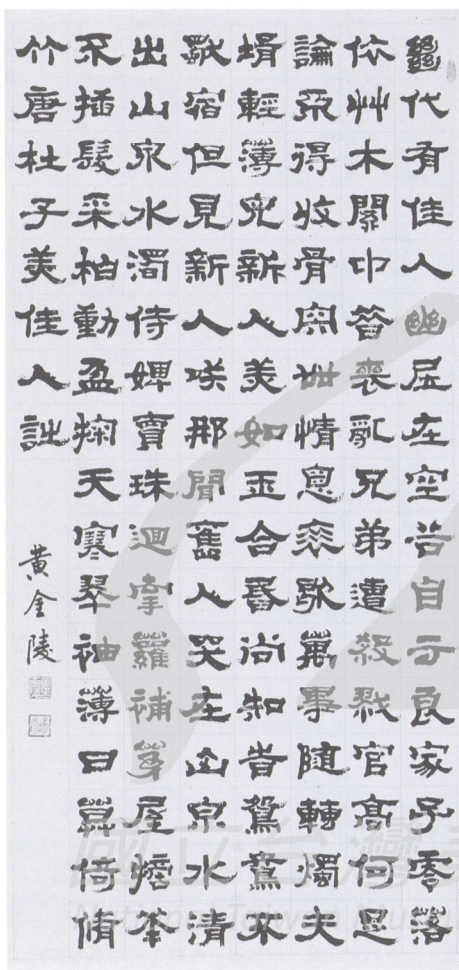 絕代有佳人幽居在空谷自云良家子零落
依艸木關中昔喪亂兄弟遭殺戮官高何足
論不得收骨肉世情惡衰歇萬事隨轉燭夫
婿輕薄兒新人美如玉合昏尚知旹鴛鴦不
獨宿但見新人咲那聞舊人哭在山泉水清
出山泉水濁侍婢賣珠迴牽蘿補茅屋摘花
不插髮采柏動盈掬天寒翠袖薄日暮倚脩
竹唐杜子美佳人詩
黃金陵